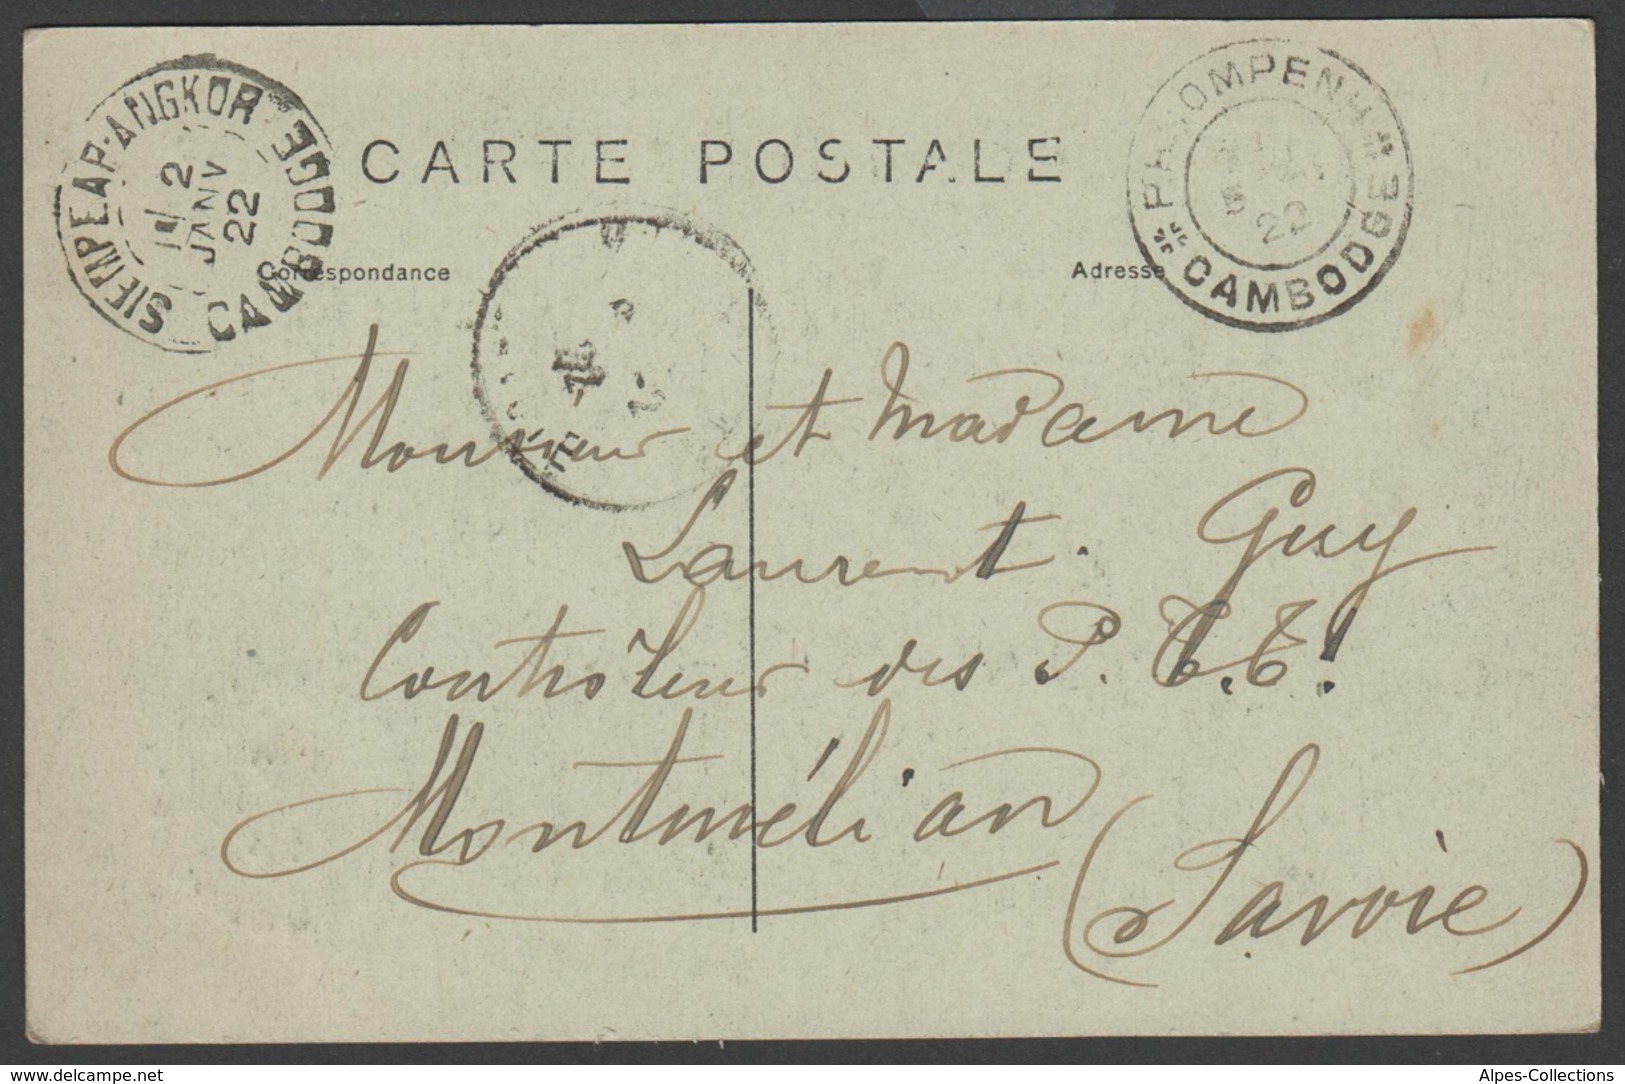 SIEMREAP-ANGKOR
CAMBODGE
2
JANV
22
PNOMPENH
CAMBODGE
22
CARTE POSTALE
Correspondance
Adresse
Monsieur et Madame
Laurent. Guy
Contrôleur des P. T. T!
Montmélian
(Savoie)
www.delcampe.net
Alpes-Collections